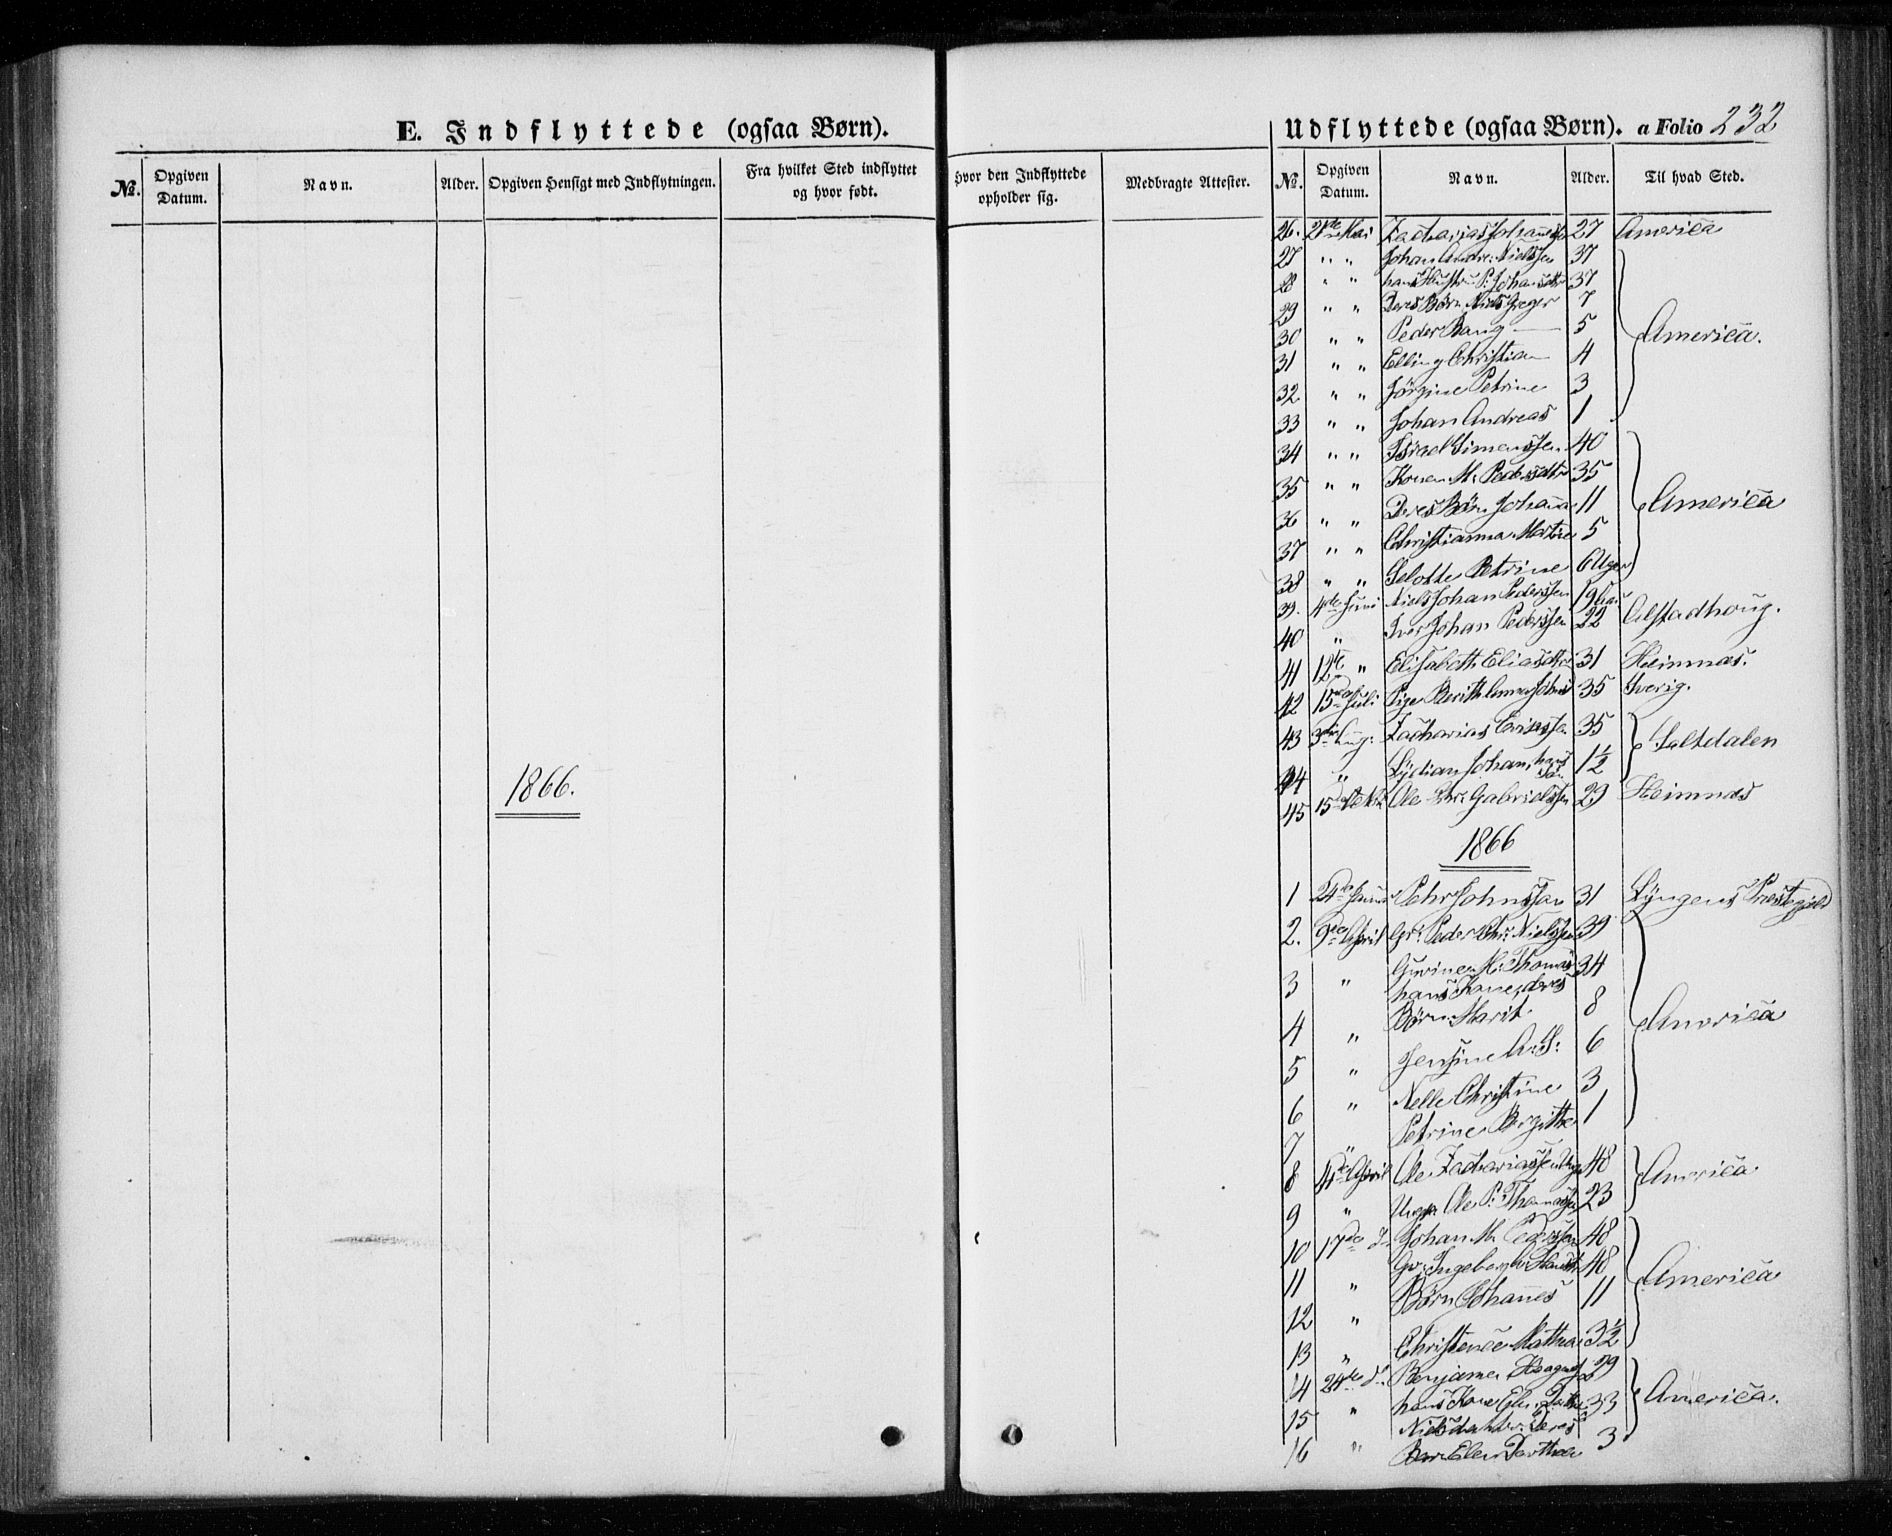 E. Indflyttede (ogsaa Børn).
No. Opgiven Datum. Navn. Alder. Opgiven Hensigt med Indflytningen. Fra hvilket Sted indflyttet og hvor født.
1866.
Udflyttede (ogsaa Børn). a Folio 232
hvor den Indflyttede opholder sig. Medbragte Attester. No. Opgiven Datum. Navn. Alder. Til hvad Sted.
26. Mai Zacharias 27 America
27 " " Johan Andr: Nielssen 37
28 " " hans Hustru P: Johansdtr 37
29 " " Deres Børn Niels Greger 7
30 " " Peder Bang 5 America.
31 " " Elling Christian 4
32 " " Jørgine Petrine 3
33 " " Johan Andreas 1
34 " " Israel Simonssen 40
35 " " Konen M: Pedersdtr 35
36 " " Deres Børn Johanna 11 America
37 " " Christianna Martine 5
38 " " Petrine 6 Uger
39. 4de Juni Niels Johan Pederssen 19
40 " Iver Johan Pederssen 22 Alstadhoug.
41 12te " Elisabeth Eliasdtr 31 Hemnæs.
42 15de Juli Pige Berith Anna 35 Sverig.
43 3die Aug: Zacharias 35 Saltdalen
44 " Lydian Johan, hans Søn 1½
45 15de Ole Chr: Gabrielssen 29 Hemnæs
1866
1 24de Januar Pehr Johnssen 31 Lyngens Præstegjeld
2. 9de April Gr: Peder Chr: Nielssen 39
3 " Gurine M: Thomas 34
hans Kone, deres
4 " Børn Marit 8 America
5 " Jensine A: S: 6
6 " Nelle Christine 3
7 " Petrine Birgitte 1
8 April Ole Zachariassen 48 America
9 " Ungk: Ole P: Thomassen 23
10 17de Johan M. Pederssen 48
11 " Ingeborg 48 America
12 " Børn Johannes 11
13 " Mathea 3½
14 24de d: Benjamin 29
15 " hans Kone Elen 33 America.
Nielsdatter: Deres
16 " Barn Elen Dorthea 3